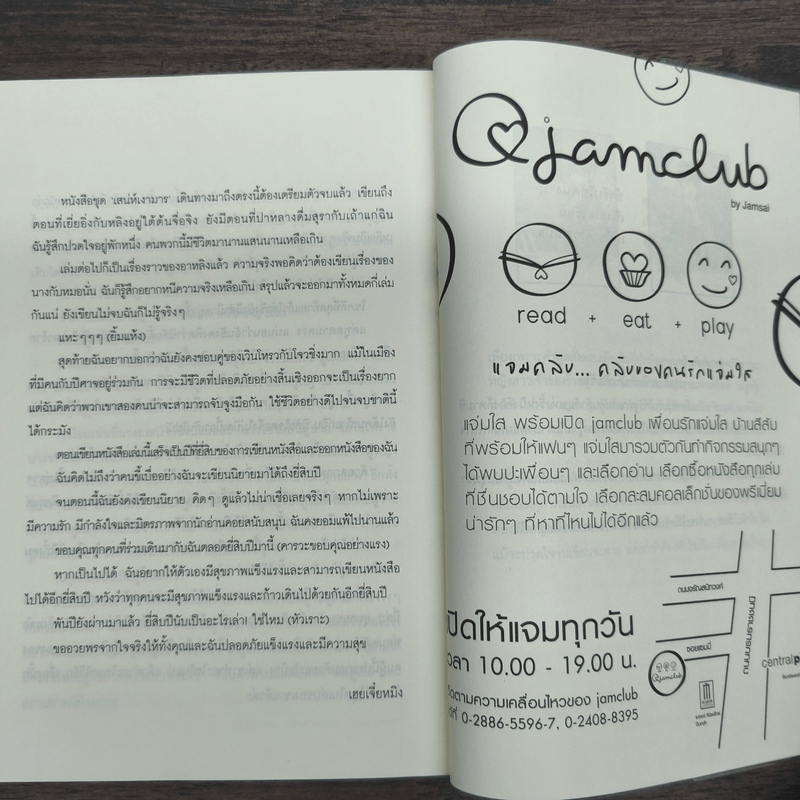 หนังสือชุด 'เสน่ห์เงามาร' เดินทางมาถึงตรงนี้ต้องเตรียมตัวจบแล้ว เขียนถึง
ตอนที่เยี่ยอิ่งกับหลิงอยู่ใต้ต้นจื่อจิง ยังมีตอนที่ปาหลางดื่มสุรากับเถ้าแก่ฉิน
ฉันรู้สึกปวดใจอยู่พักหนึ่ง คนพวกนี้มีชีวิตมานานแสนนานเหลือเกิน
เล่มต่อไปก็เป็นเรื่องราวของอาหลิงแล้ว ความจริงพอคิดว่าต้องเขียนเรื่องของ
นางกับหมอนั่น ฉันก็รู้สึกอยากหนีความจริงเหลือเกิน สรุปแล้วจะออกมาทั้งหมดกี่เล่ม
กันแน่ ยังเขียนไม่จบฉันก็ไม่รู้จริงๆ
แหะๆๆๆ (ยิ้มแห้ง)
สุดท้ายฉันอยากบอกว่าฉันยังคงชอบคู่ของเวินโหรวกับโจวชิ่งมาก แม้ในเมือง
ที่มีคนกับปีศาจอยู่ร่วมกัน การจะมีชีวิตที่ปลอดภัยอย่างสิ้นเชิงออกจะเป็นเรื่องยาก
แต่ฉันคิดว่าพวกเขาสองคนน่าจะสามารถจับจูงมือกัน ใช้ชีวิตอย่างดีไปจนจบชาตินี้
ได้กระมัง
ตอนเขียนหนังสือเล่มนี้เสร็จเป็นปีที่ยี่สิบของการเขียนหนังสือและออกหนังสือของฉัน
ฉันคิดไม่ถึงว่าคนขี้เบื่ออย่างฉันจะเขียนนิยายมาได้ถึงยี่สิบปี
จนตอนนี้ฉันยังคงเขียนนิยาย คิดๆ ดูแล้วไม่น่าเชื่อเลยจริงๆ หากไม่เพราะ
มีความรัก มีกำลังใจและมิตรภาพจากนักอ่านคอยสนับสนุน ฉันคงยอมแพ้ไปนานแล้ว
ขอบคุณทุกคนที่ร่วมเดินมากับฉันตลอดยี่สิบปีมานี้ (คารวะขอบคุณอย่างแรง)
หากเป็นไปได้ ฉันอยากให้ตัวเองมีสุขภาพแข็งแรงและสามารถเขียนหนังสือ
ไปได้อีกยี่สิบปี หวังว่าทุกคนจะมีสุขภาพแข็งแรงและก้าวเดินไปด้วยกันอีกยี่สิบปี
พันปียังผ่านมาแล้ว ยี่สิบปีนับเป็นอะไรเล่า! ใช่ไหม (หัวเราะ)
ขออวยพรจากใจจริงให้ทั้งคุณและฉันปลอดภัยแข็งแรงและมีความสุข
เฮยเจี๋ยหมิง
jamclub
by Jamsai
read + eat + play
แจมคลับ... คลับของคนรักแจ่มใส
แจ่มใส พร้อมเปิด jamclub เพื่อนรักแจ่มใส บ้านสีส้ม
ที่พร้อมให้แฟนๆ แจ่มใสมารวมตัวกันทำกิจกรรมสนุกๆ
ได้พบปะเพื่อนๆ และเลือกอ่าน เลือกซื้อหนังสือทุกเล่ม
ที่ชื่นชอบได้ตามใจ เลือกสะสมคอลเล็กชั่นของพรีเมี่ยม
น่ารักๆ ที่หาที่ไหนไม่ได้อีกแล้ว
เปิดให้แจมทุกวัน
เวลา 10.00 - 19.00 น.
ติดตามความเคลื่อนไหวของ jamclub
ได้ที่ 0-2886-5596-7, 0-2408-8395
ถนนจรัญสนิทวงศ์
ซอยแซมมี่
jamclub